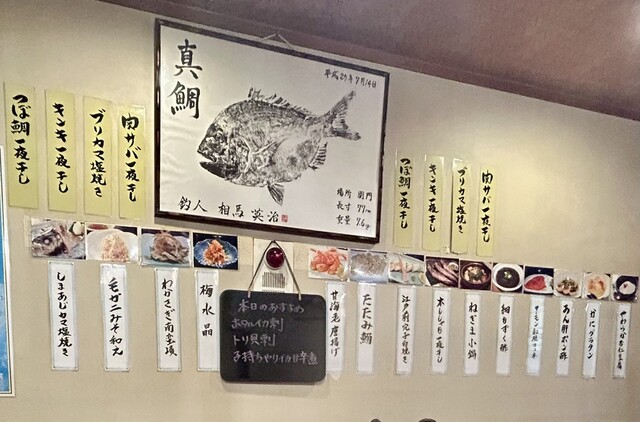 つぼ鯛一夜干し
キンキ一夜干し
ブリカマ塩焼き
肉サバ一夜干し
真鯛
平成27年9月14日
場所 関門
長寸 77cm
重量 7.6kg
釣人 相馬 英治
つぼ鯛一夜干し
キンキ一夜干し
ブリカマ塩焼き
肉サバ一夜干し
しまあじカマ塩焼き
毛ガニみそ和え
わかさぎ南蛮漬
梅水晶
本日のおすすめ
ホタルイカ刺
トリ貝刺
子持ちやりイカ甘辛煮
甘海老唐揚げ
たたみ鰯
江戸前穴子白焼き
本ししゃも一夜干し
ねぎま小鍋
細もずく酢
あん肝ポン酢
かにグラタン